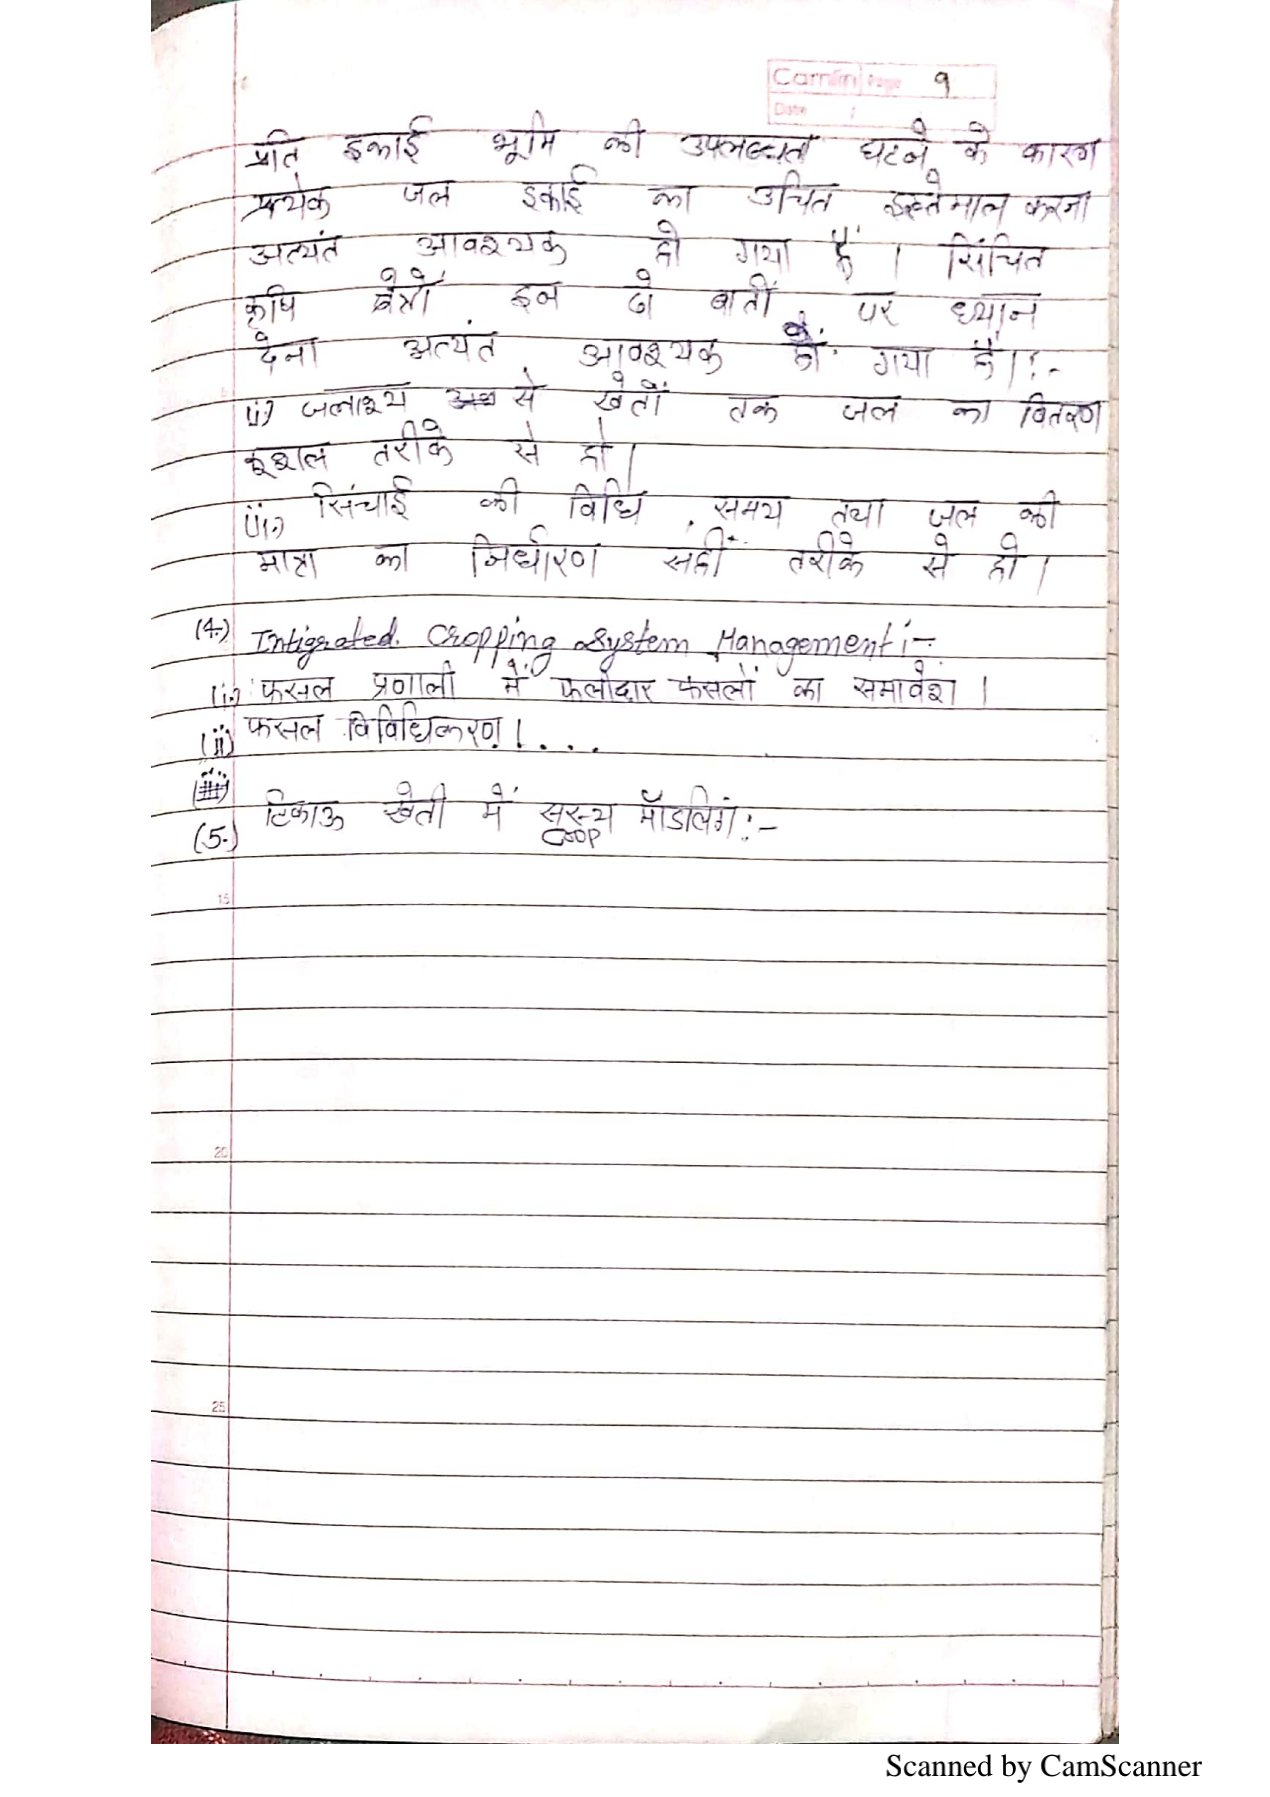 Camlin Page 9
Date /
प्रति इकाई भूमि की उपलब्धता घटने के कारण
प्रत्येक जल इकाई का उचित इस्तेमाल करना
अत्यंत आवश्यक हो गया हैं । सिंचित
कृषि क्षेत्रों इन दो बातों पर ध्यान
देना अत्यंत आवश्यक हो गया हैं।:-
(i) जलाशय से खेतों तक जल का वितरण
कुशल तरीके से हो।
(ii) सिंचाई की विधि, समय तथा जल की
मात्रा का निर्धारण सहीं तरीके से हो।
(4.) Intigrated. Cropping System Management:-
(i.) फसल प्रणाली में फलीदार फसलों का समावेश ।
(ii) फसल विविधिकरण।....
(iii)
(5.) टिकाऊ खेती में सस्य मॉडलिंग:-
Crop
15
20
25
Scanned by CamScanner